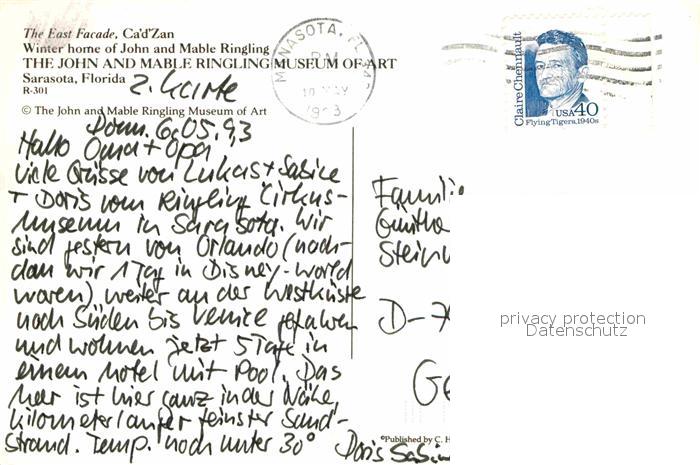 The East Facade, Ca'd'Zan
Winter home of John and Mable Ringling
THE JOHN AND MABLE RINGLING MUSEUM OF ART
Sarasota, Florida
R-301
2. Karte
© The John and Mable Ringling Museum of Art
Donn. 6.05.93
Hallo Oma + Opa
viele Grüsse von Lukas + Sabine
+ Doris vom Ringling Cirkus-
museum in Sarasota. Wir
sind gestern von Orlando (nach-
dem wir 1 Tag in Disney-World
waren) weiter an der Westküste
nach Süden bis Venice gefahren
und wohnen jetzt 5 Tage in
einem Hotel mit Pool. Das
Meer ist hier ganz in der Nähe,
kilometerlanger feinster Sand-
strand. Temp. noch unter 30°
Doris Sabin
MANASOTA, FL
PM
10 MAY
1993
Claire Chennault
USA 40
Flying Tigers, 1940s
Famili
Günthe
Stein
D-7
Ge
©Published by C. H
privacy protection
Datenschutz